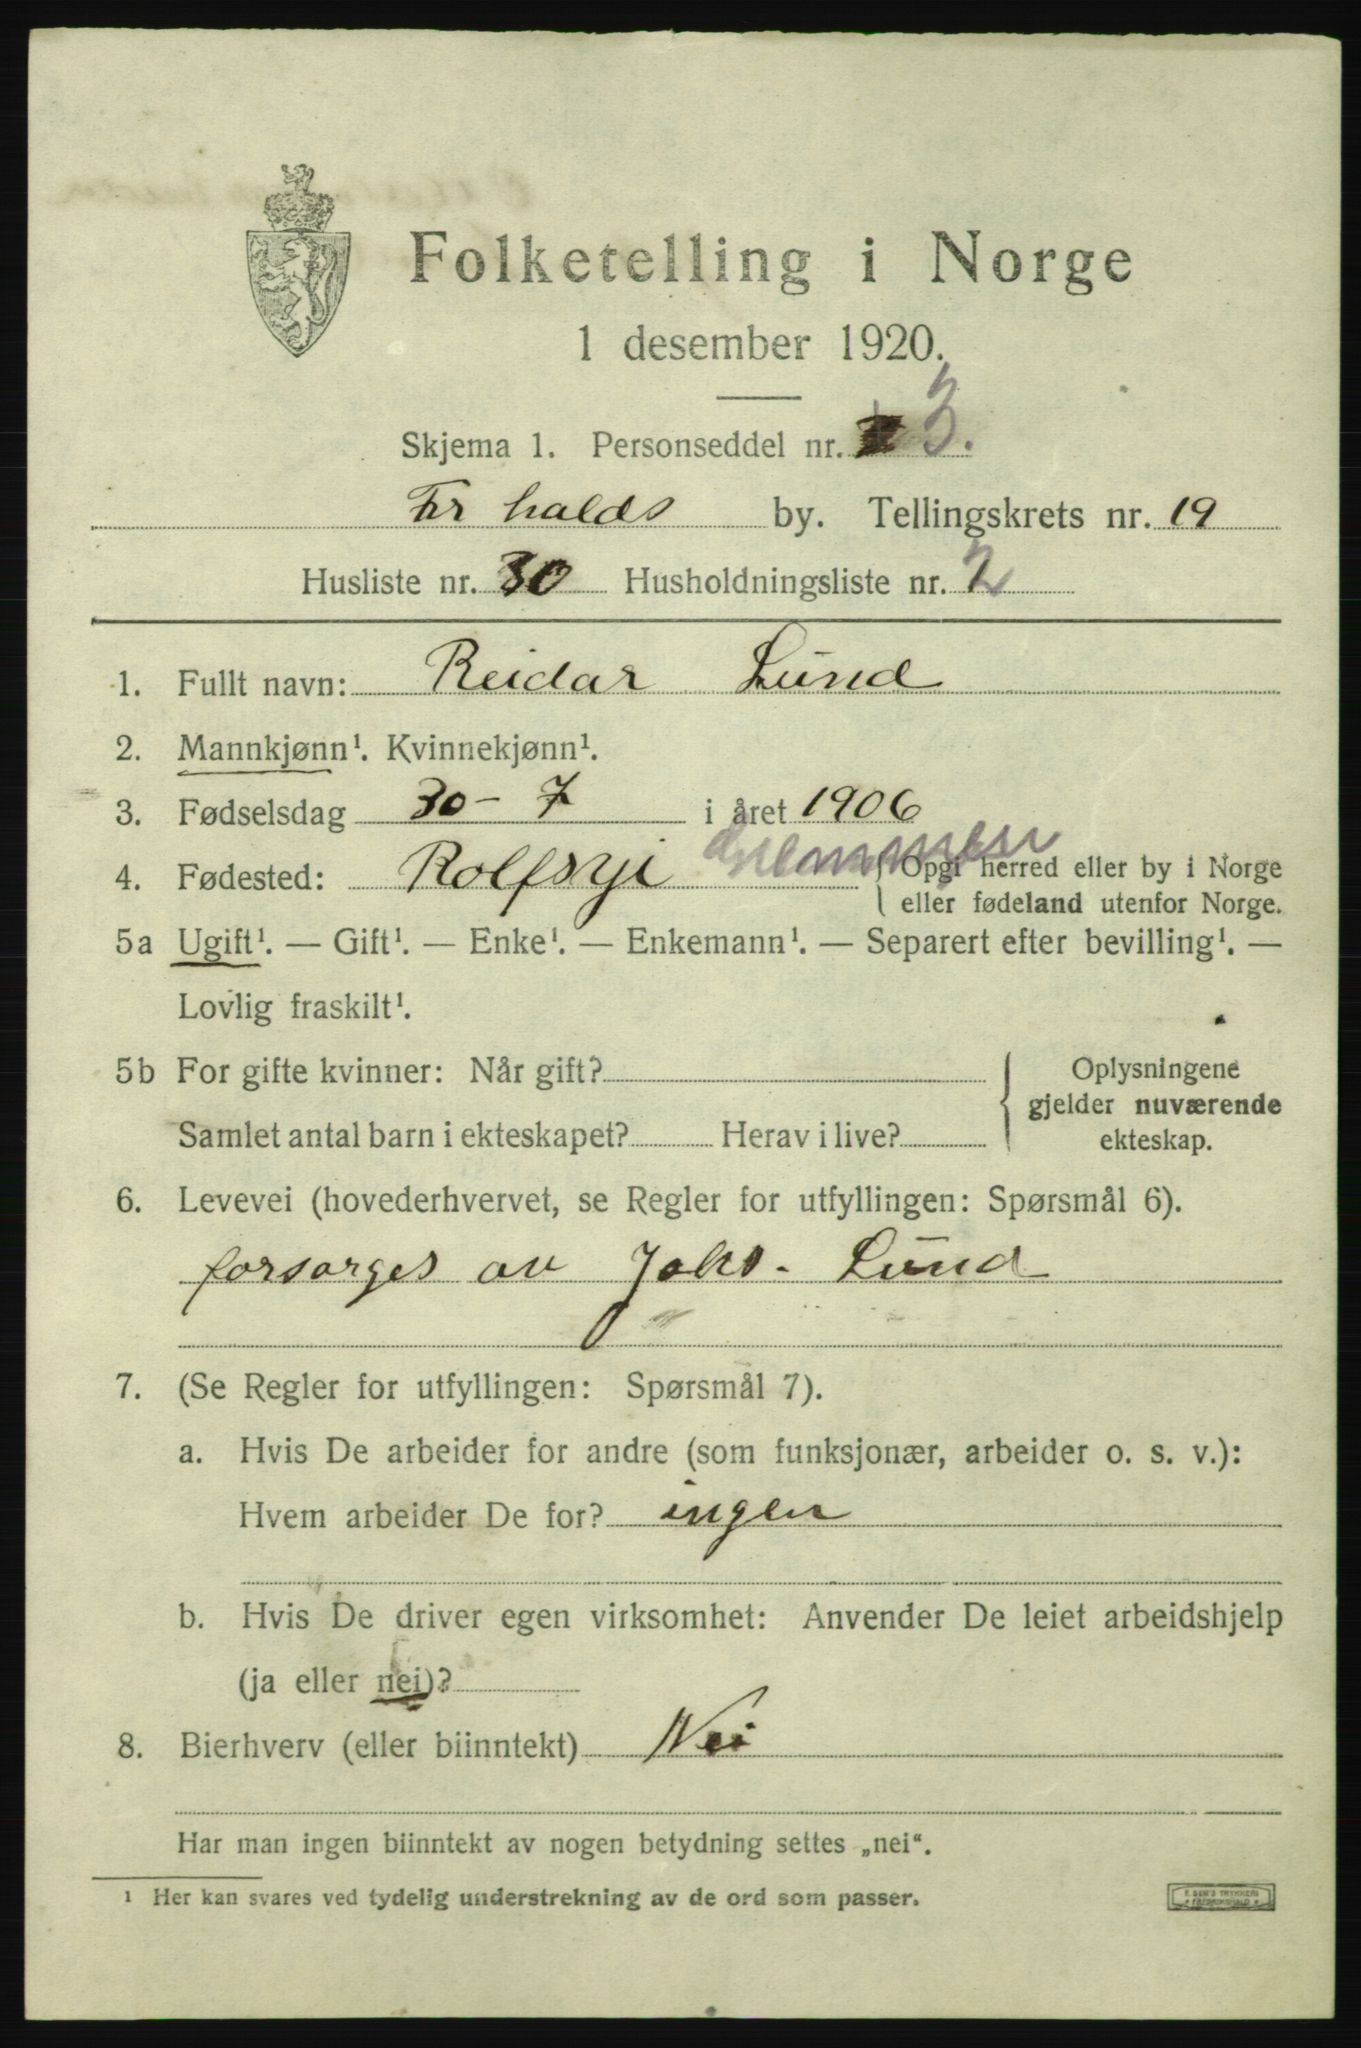 Folketelling i Norge
1 desember 1920.
Skjema 1. Personseddel nr. 3.
Fr halds by. Tellingskrets nr. 19
Husliste nr. 30 Husholdningsliste nr. 2
1. Fullt navn: Reidar Lund
2. Mannkjønn¹. Kvinnekjønn¹.
3. Fødselsdag 30-7 i året 1906
4. Fødested: Rolfsyi { Opgi herred eller by i Norge
eller fødeland utenfor Norge.
5a Ugift¹. — Gift¹. — Enke¹. — Enkemann¹. — Separert efter bevilling¹. —
Lovlig fraskilt¹.
5b For gifte kvinner: Når gift?
Samlet antal barn i ekteskapet? Herav i live?
{ Oplysningene
gjelder nuværende
ekteskap.
6. Levevei (hovederhvervet, se Regler for utfyllingen: Spørsmål 6).
forsørges av Johs. Lund
7. (Se Regler for utfyllingen: Spørsmål 7).
a. Hvis De arbeider for andre (som funksjonær, arbeider o. s. v.):
Hvem arbeider De for? ingen
b. Hvis De driver egen virksomhet: Anvender De leiet arbeidshjelp
(ja eller nei)?
8. Bierhverv (eller biinntekt) Nei
Har man ingen biinntekt av nogen betydning settes „nei“.
¹ Her kan svares ved tydelig understrekning av de ord som passer.